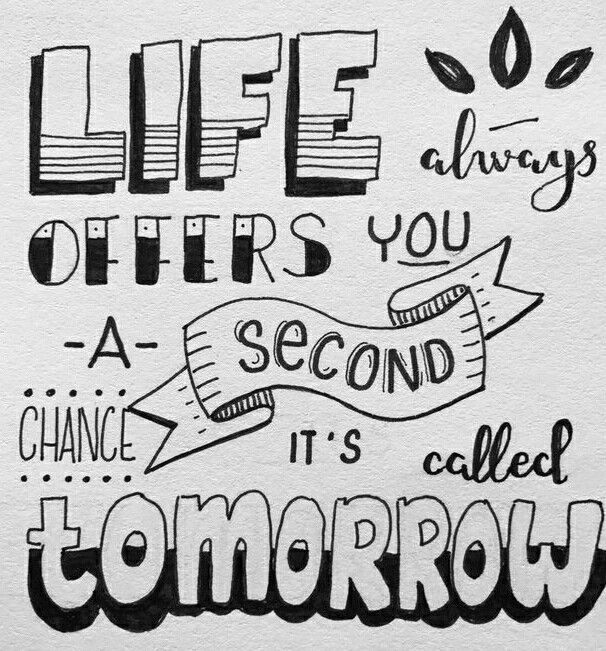 LIFE always
OFFERS YOU
-A- SECOND
CHANCE IT'S called
tOmORROW